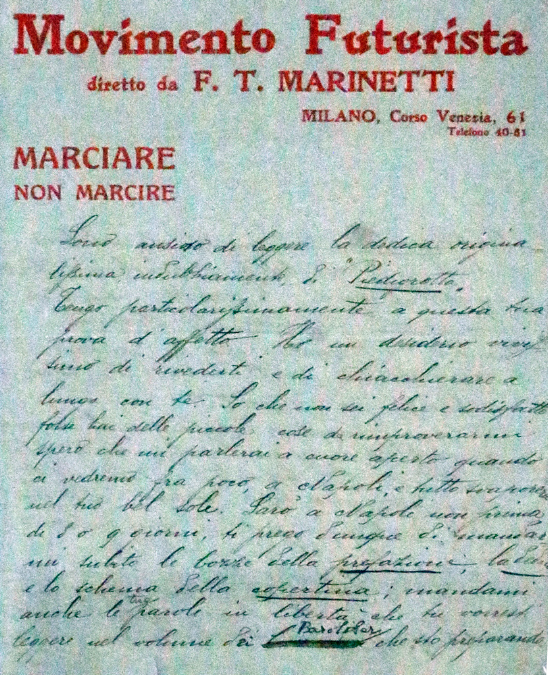 Movimento Futurista
diretto da F. T. MARINETTI
MILANO, Corso Venezia, 61
Telefono 40-81
MARCIARE
NON MARCIRE
Sono ansioso di leggere la dedica origina-
lissima indubbiamente, di "Piedigrotta".
Tengo particolarissimamente a questa tua
prova d'affetto. Ho un desiderio vivis-
simo di rivederti e di chiacchierare a
lungo con te. So che non sei felice e sodisfatto
forse hai delle piccole cose da rimproverarmi
spero che mi parlerai a cuore aperto quando
ci vedremo fra poco, a Napoli, e tutto svaporerà
nel tuo bel sole. Sarò a Napoli non prima
di 8 o 9 giorni, ti prego dunque di mandar-
mi subito le bozze della prefazione, la
e lo schema della copertina; mandami
anche le tue parole in libertà che tu vorresti
leggere nel volume dei che sto preparando